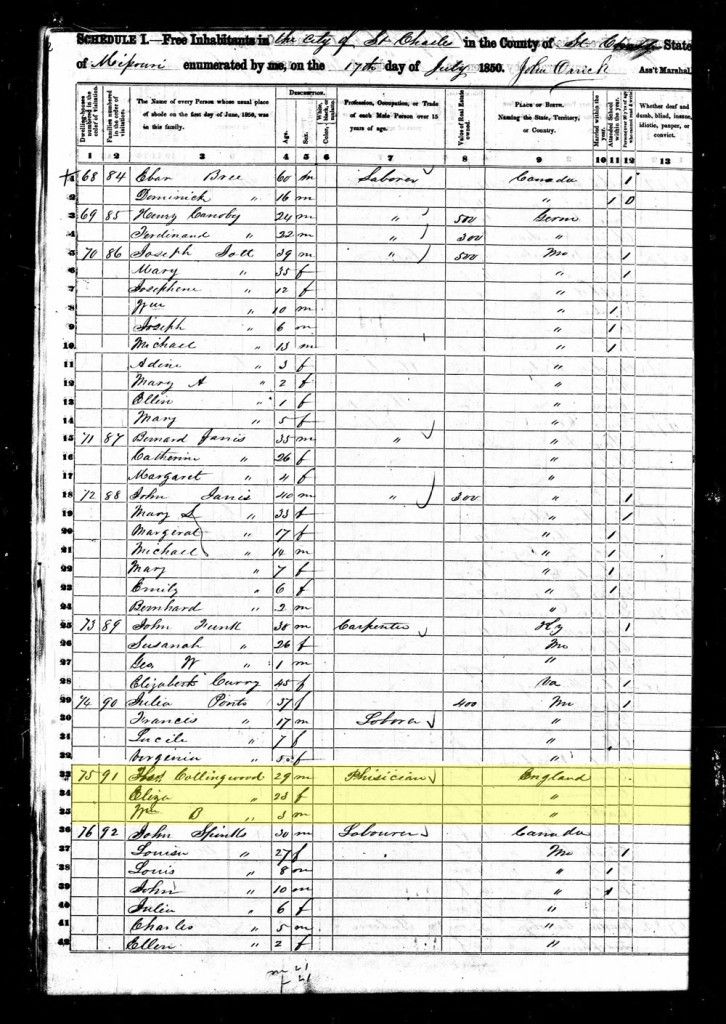 SCHEDULE I.—Free Inhabitants in the City of St Charles in the County of St Charles State
of Missouri enumerated by me, on the 17th day of July 1850. John Orrick Ass't Marshal.
Dwelling-houses numbered in the order of visitation.
Families numbered in the order of visitation.
The Name of every Person whose usual place of abode on the first day of June, 1850, was in this family.
DESCRIPTION.
Age.
Sex.
Color, White, black, or mulatto.
Profession, Occupation, or Trade of each Male Person over 15 years of age.
Value of Real Estate owned.
PLACE OF BIRTH. Naming the State, Territory, or Country.
Married within the year.
Attended School within the year.
Whether deaf and dumb, blind, insane, idiotic, pauper, or convict.
1 2 3 4 5 6 7 8 9 10 11 12 13
1 68 84 Bree 60 m Laborer Canada 1
2 Dominick " 16 m " 1 0
3 69 85 Henry Canoby 24 m " 500 Germ
4 Ferdinand " 22 m " 300 "
5 70 86 Joseph 39 m " 500 Mo 1
6 Mary " 35 f " 1
7 Josephene " 12 f "
8 Wm " 10 m " 1
9 Joseph " 6 m " 1
10 Michael " 13 m " 1
11 Adine " 3 f "
12 Mary A " 2 f "
13 Ellen " 1 f "
14 Mary " 5 f "
15 71 87 Bernard Janis 35 m " "
16 Catherine " 26 f "
17 Margaret " 4 f "
18 72 88 John Janis 40 m " 300 " 1
19 Mary L " 33 f " 1
20 Margerat " 17 f " 1
21 Michael " 14 m " 1
22 Mary " 7 f " 1
23 Emily " 6 f " 1
24 Bernhard " 2 m "
25 73 89 John Funk 30 m Carpenter Ky 1
26 Susanah " 26 f Mo
27 Geo W " 1 m "
28 Elizabeth Curry 45 f Va 1
29 74 90 Julia Ponts 37 f 400 Mo 1
30 Frances " 17 m Laborer "
31 Lucile " 7 f "
32 Virgenia " 5 f "
33 75 91 Collingwood 29 m Phisician England
34 Eliza " 23 f "
35 Wm B " 3 m "
36 76 92 John Spinks 30 m Labourer Canada
37 Louisa " 27 f Mo 1
38 Louis " 8 m " 1
39 John " 10 m " 1
40 Julia " 6 f "
41 Charles " 5 m "
42 Ellen " 2 f "
m 21
f 21